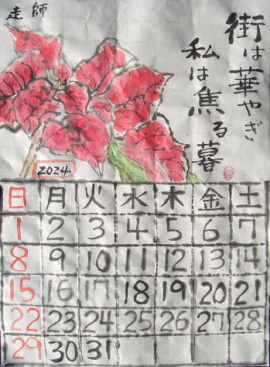 師走
街は華やぎ
私は焦る暮
2024
日 月 火 水 木 金 土
1 2 3 4 5 6 7
8 9 10 11 12 13 14
15 16 17 18 19 20 21
22 23 24 25 26 27 28
29 30 31